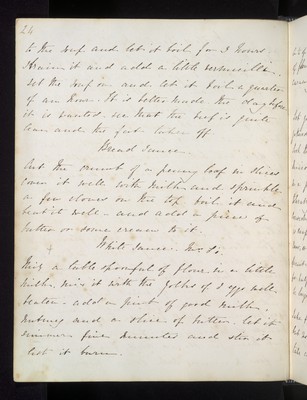 24
to the soup and let it boil for 3 hours
strain it and add a little vermicelli
set the soup on and let it boil a quarter
of an hour. It is better made the day before
it is wanted. see that the beef is quite
lean and the fat taken off
Bread Sauce.
Cut the crumb of a penny loaf in slices
cover it well with milk and sprinkle
a few cloves on the top boil it and
beat it well and add a piece of
butter or some cream to it.
White Sauce.
Mix a table spoonful of flour in a little
milk. mix it with the yolks of 2 eggs well
beaten. add a pint of good milk.
nutmeg and a slice of butter. let it
simmer five minutes and stir it
lest it burn.